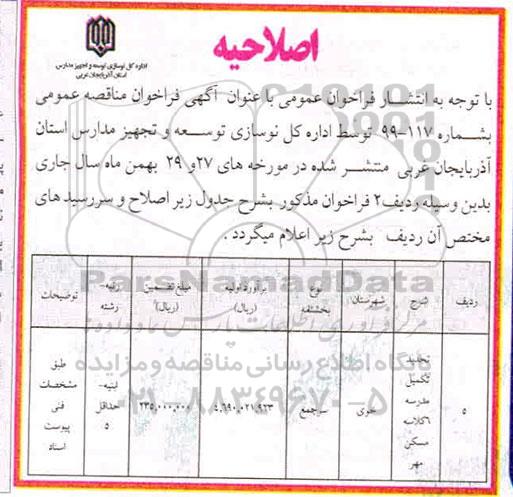 اداره کل نوسازی توسعه و تجهیز مدارس
استان آذربایجان غربی
اصلاحیه
با توجه به انتشار فراخوان عمومی با عنوان آگهی فراخوان مناقصه عمومی
بشماره ۱۱۷-۹۹ توسط اداره کل نوسازی توسعه و تجهیز مدارس استان
آذربایجان غربی منتشر شده در مورخه های ۲۷و ۲۹ بهمن ماه سال جاری
بدین وسیله ردیف۲ فراخوان مذکور بشرح جدول زیر اصلاح و سررسید های
مختص آن ردیف بشرح زیر اعلام میگردد .
ردیف شرح شهرستان نوع بخشنامه برآورد اولیه (ریال) مبلغ تضمین (ریال) رتبه-رشته توضیحات
۵ تجدید تکمیل مدرسه ۶کلاسه مسکن مهر خوی سرجمع ۴.۶۹۰.۰۲۱.۹۲۳ ۲۳۵,۰۰۰,۰۰۰ ابنیه-حداقل ۵ طبق مشخصات فنی پیوست اسناد
ParsNamadData
مرکز فرآوری اطلاعات پارس نماد داده ها
پایگاه اطلاع رسانی مناقصه و مزایده
۰۲۱-۸۸۳۴۹۶۷۰-۵